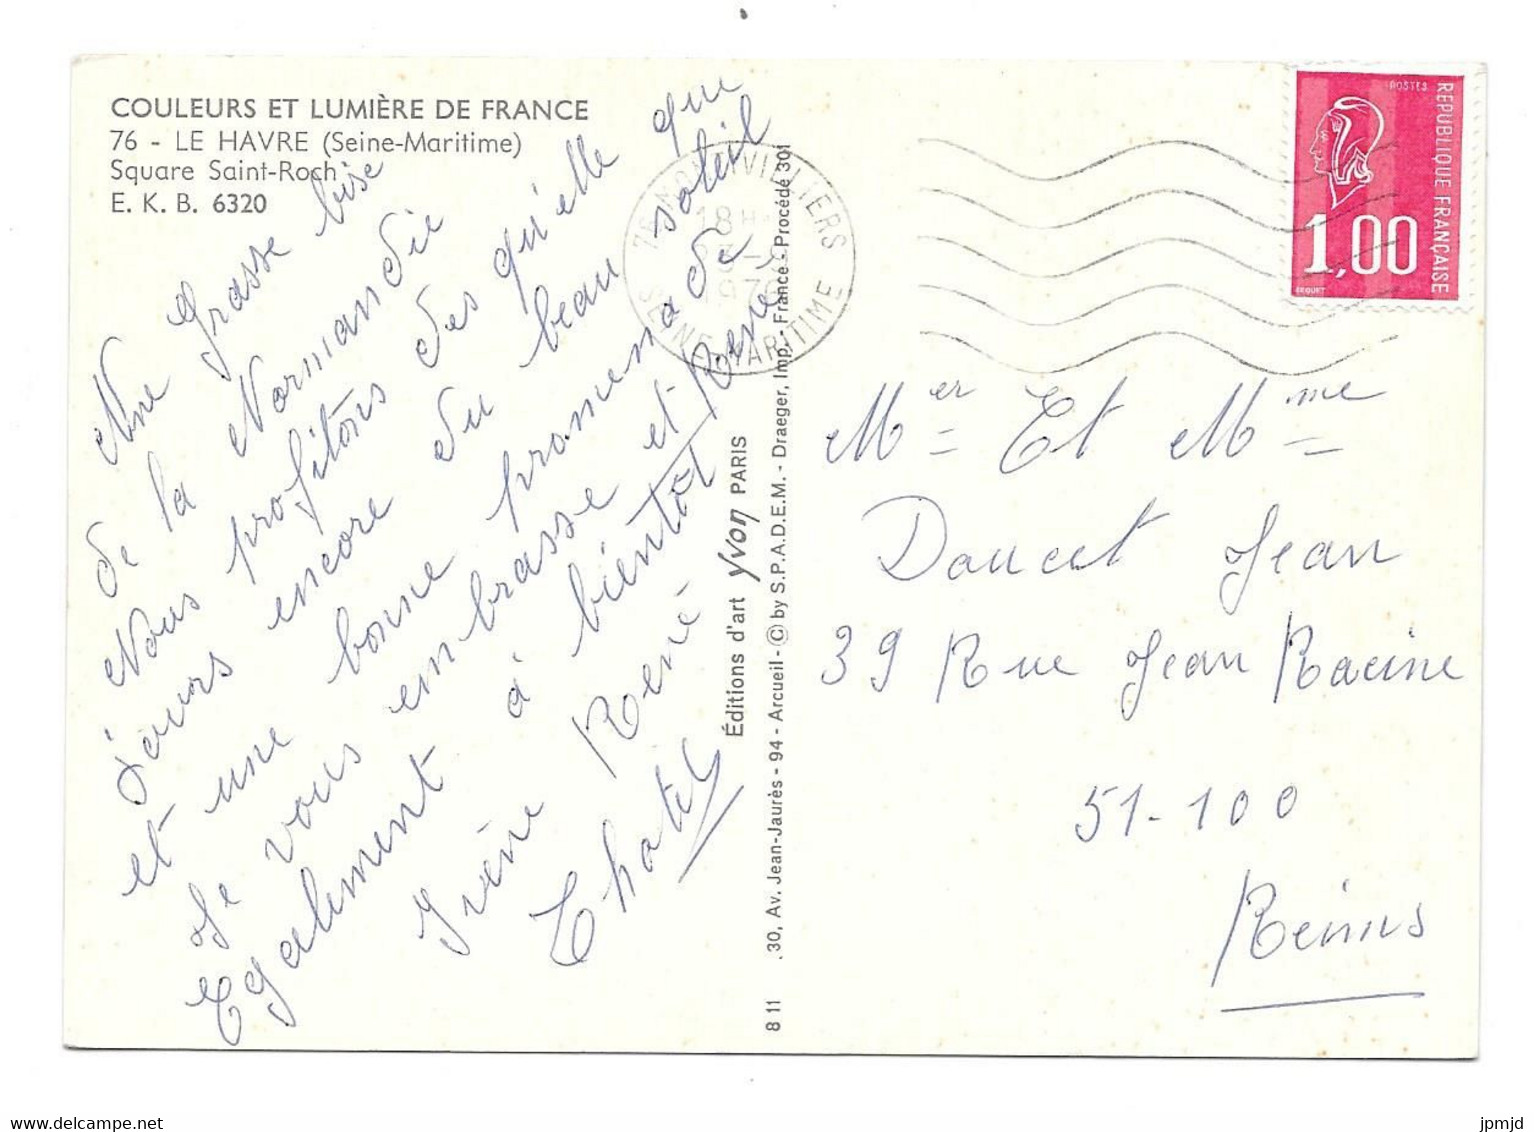 COULEURS ET LUMIÈRE DE FRANCE
76 - LE HAVRE (Seine-Maritime)
Square Saint-Roch
E. K. B. 6320
Une grosse bise
de la Normandie
Nous profitons des qu'elle que
jours encore du beau soleil
et une bonne promenade
Je vous embrasse et René
Egalement à bientôt
Irène René
Chatel
Éditions d'art yvon PARIS
8 11 .30, Av. Jean-Jaurès - 94 - Arcueil - © by S.P.A.D.E.M. - Draeger, Imp. - France - Procédé 301
76 MONTIVILLIERS
18H
1976
SEINE MARITIME
POSTES
REPUBLIQUE FRANÇAISE
1,00
BEQUET
Mer Et Mme
Doucet Jean
39 Rue Jean Racine
51-100
Reims
www.delcampe.net
jpmjd